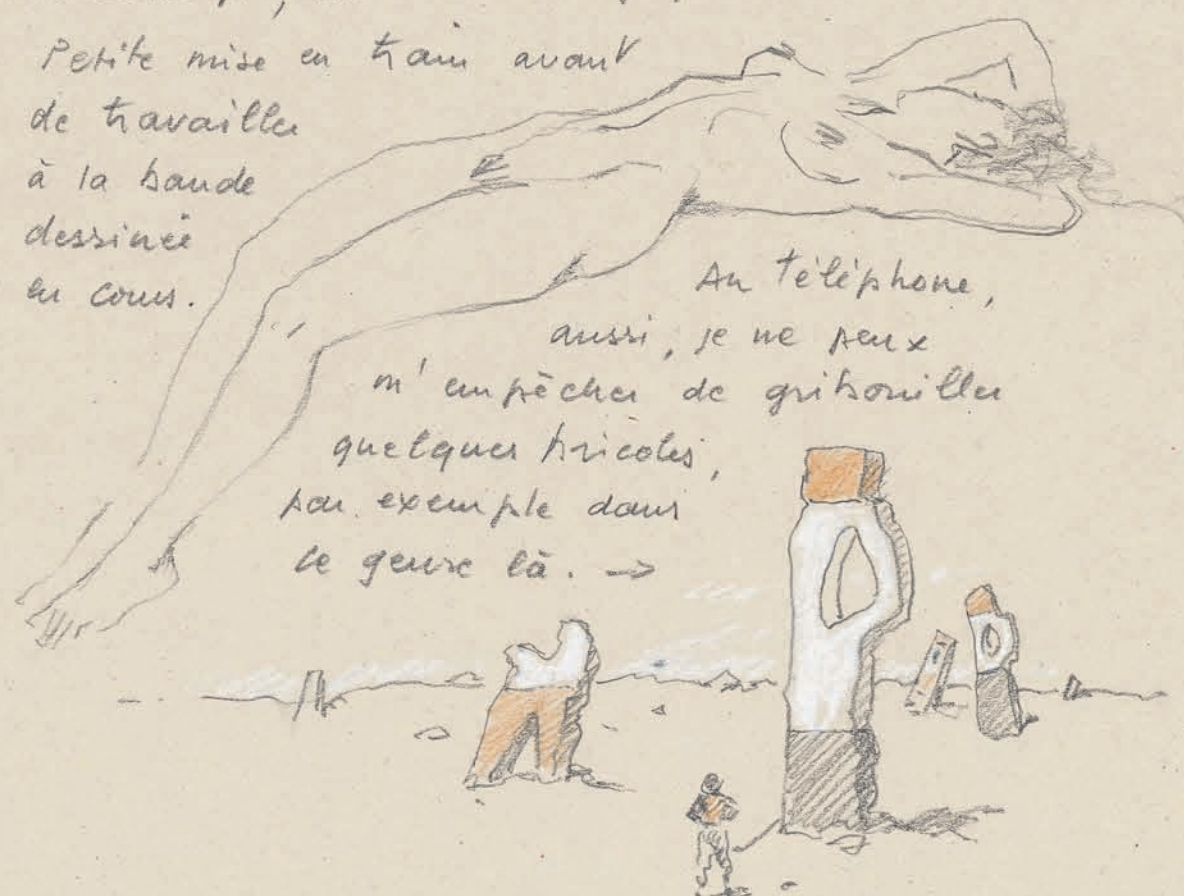 Petite mise en train avant
de travailler
à la bande
dessinée
en cours.
Au téléphone,
aussi, je ne peux
m'empêcher de gribouiller
quelques bricoles,
par exemple dans
le genre là. →